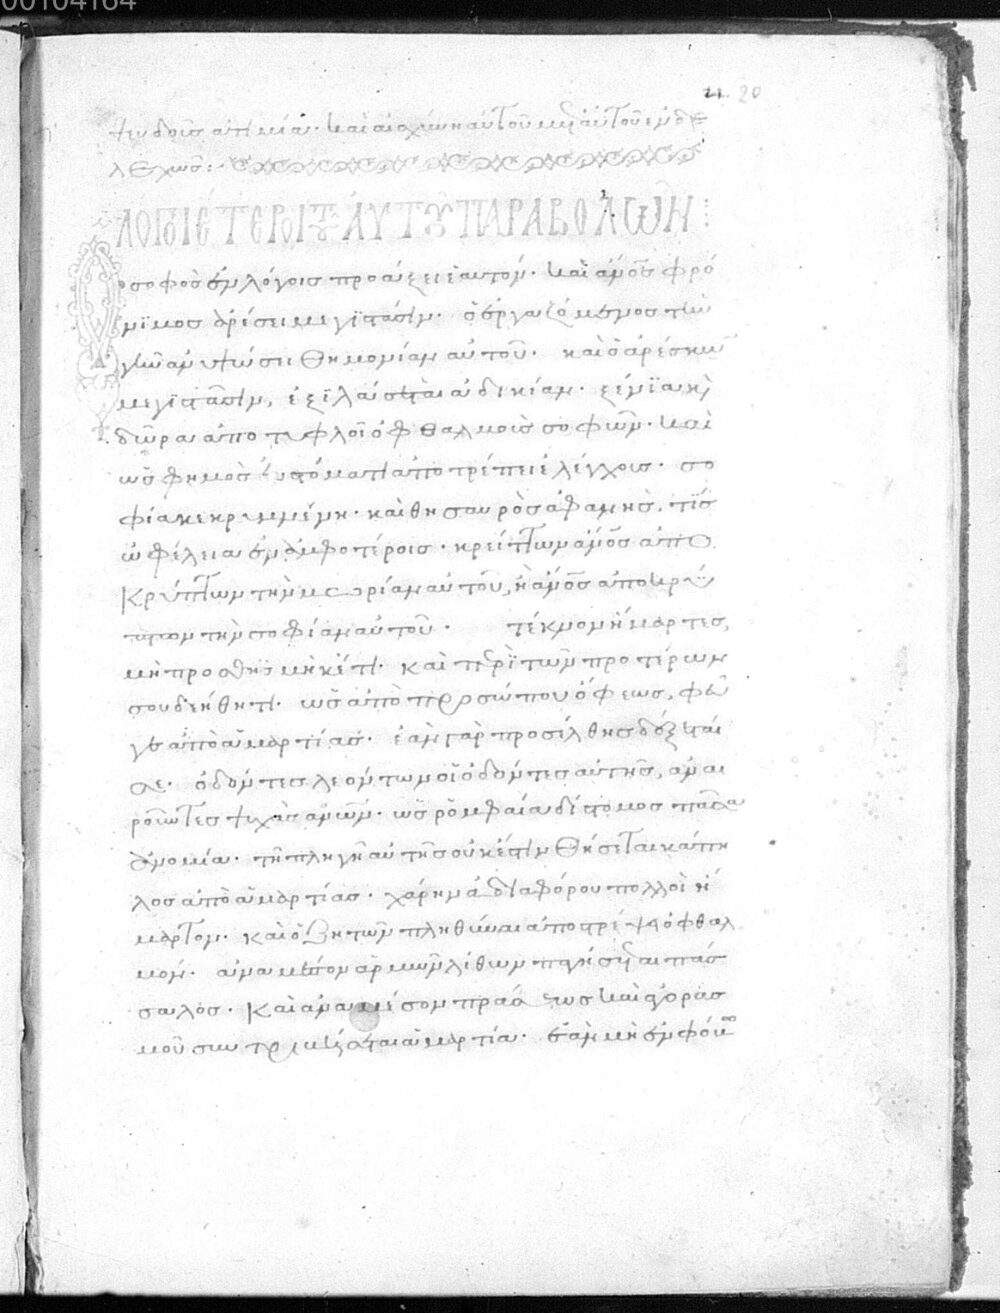 00104164
21 20
ψευδοῦς ἀτιμία· καὶ αἰσχύνη αὐτοῦ μετ' αὐτοῦ ἐνδε
λεχῶς:·
ΛΟΓΟΙ ΕΤΕΡΟΙ ΤΟΥ ΑΥΤΟΥ ΠΑΡΑΒΟΛΩΝ:
Ὁ σοφὸς ἐν λόγοις προάξει ἑαυτόν· καὶ ἄνος φρό
νιμος ἀρέσει μεγιστᾶσιν· ὁ ἐργαζόμενος τὴν
γῆν ἀνυψώσει θημονίαν αὐτοῦ· καὶ ὁ ἀρέσκων
μεγιστᾶσιν, ἐξιλάσεται ἀδικίαν· ξένια κὶ
δῶρα ἀποτυφλοῖ ὀφθαλμοὺς σοφῶν· καὶ
ὡς φημὸς ἐν στόματι ἀποτρέπει ἐλέγχους· σο
φία κεκρυμμένη· καὶ θησαυρὸς ἀφανὴς, τίς
ὠφέλεια ἐν ἀμφοτέροις· κρείττων ἄνος ἀπο
κρύπτων τὴν μωρίαν αὐτοῦ, ἢ ἄνος ἀποκρύ
πτων τὴν σοφίαν αὐτοῦ· τέκνον ἥμαρτες,
μὴ προσθῇς μηκέτι· καὶ περὶ τῶν προτέρων
σου δεήθητι· ὡς ἀπὸ προσώπου ὄφεως, φεῦ
γε ἀπὸ ἁμαρτίας· ἐὰν γὰρ προσέλθῃς δήξεταί
σε· ὀδόντες λέοντων οἱ ὀδόντες αὐτῆς, ἀναι
ροῦντες ψυχὰς ἀνῶν· ὡς ῥομφαία δίστομος πᾶσα
ἀνομία· τῇ πληγῇ αὐτῆς οὐκ ἔστιν
λος ἀπὸ ἁμαρτίας· χάριν διαφόρου πολλοὶ ἥ
μαρτον· καὶ ὁ ζητῶν πληθῦναι ἀποστρέψει ὀφθαλ
μόν· ἀνὰ μέσον ἁρμῶν λίθων παγήσεται πάσ
σαλος· καὶ ἀνὰ μέσον πράσεως καὶ ἀγορας
μοῦ συντριβήσεται ἁμαρτία· ἐὰν μὴ ἐν φόβω